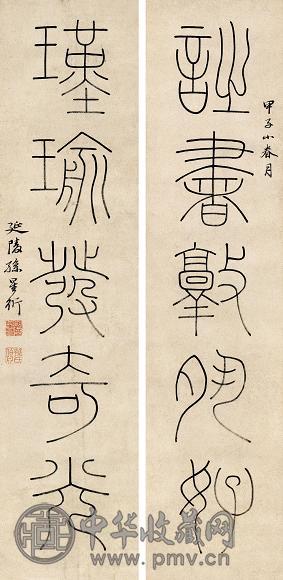 甲子小春月
詩書敦夙好
瑾瑜發奇光
延陵孫星衍
中华收藏网
www.pmv.cn